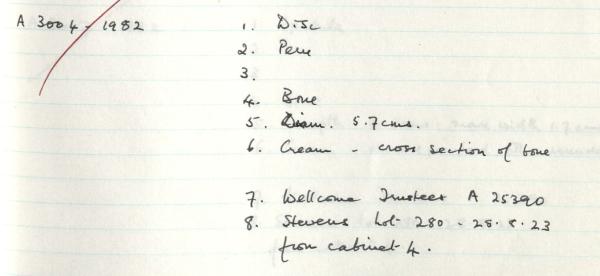 A 3004 - 1982
1. Disc
2. Peru
3.
4. Bone
5. Diam. 5.7cms.
6. Cream - cross section of bone
7. Wellcome Trustees A 25390
8. Stevens Lot 280 - 28.8.23
from cabinet 4.